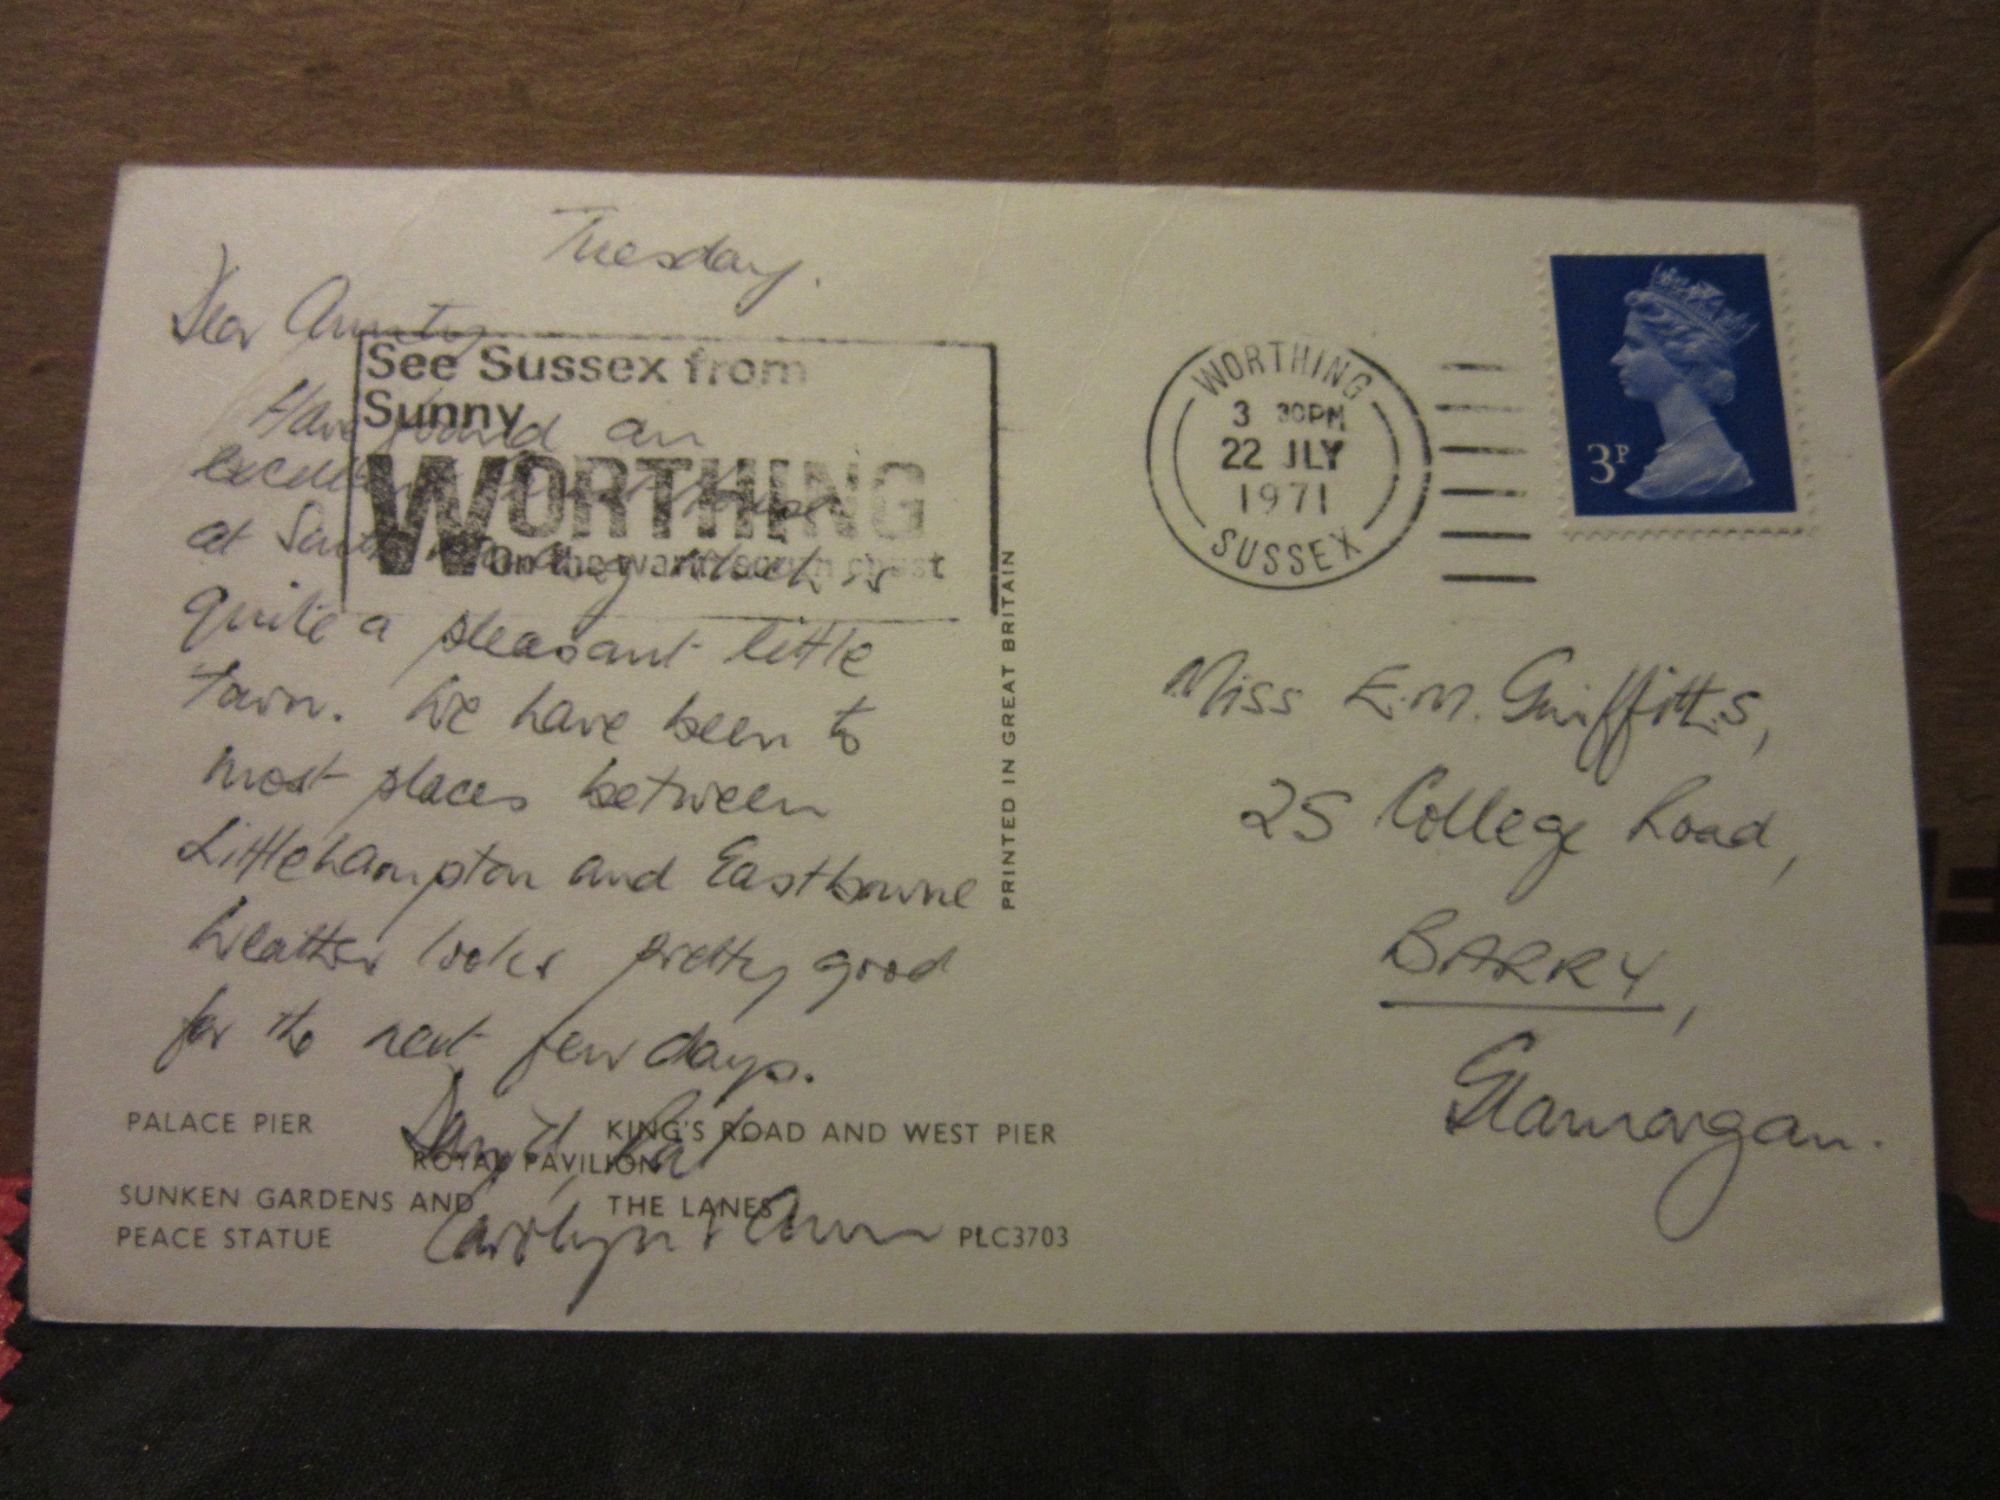 Tuesday.
Dear Aunty
Have found an
excellent house
at South which is
quite a pleasant little
town. We have been to
most places between
Littlehampton and Eastbourne
Weather looks pretty good
for the next few days.
David, Pat
Carolyn & Ann
See Sussex from
Sunny
WORTHING
on the warm south coast
PALACE PIER
KING'S ROAD AND WEST PIER
ROYAL PAVILION
SUNKEN GARDENS AND
PEACE STATUE
THE LANES
PLC3703
PRINTED IN GREAT BRITAIN
WORTHING
3 30PM
22 JLY
1971
SUSSEX
3P
Miss E.M. Griffitts,
25 College Road,
BARRY,
Glamorgan.